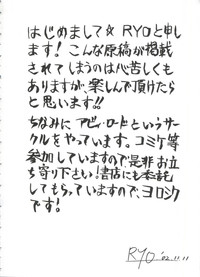 はじめまして☆ RYOと申し
ます！こんな原稿が掲載
されてしまうのは心苦しくも
ありますが、楽しんで頂けたら
と思います!!
ちなみに アビィ・ロードというサー
クルをやっています。コミケ等
参加していますので是非お立
ち寄り下さい！書店にも委託
してもらっていますので、ヨロシク
です！
RYO '02.11.11